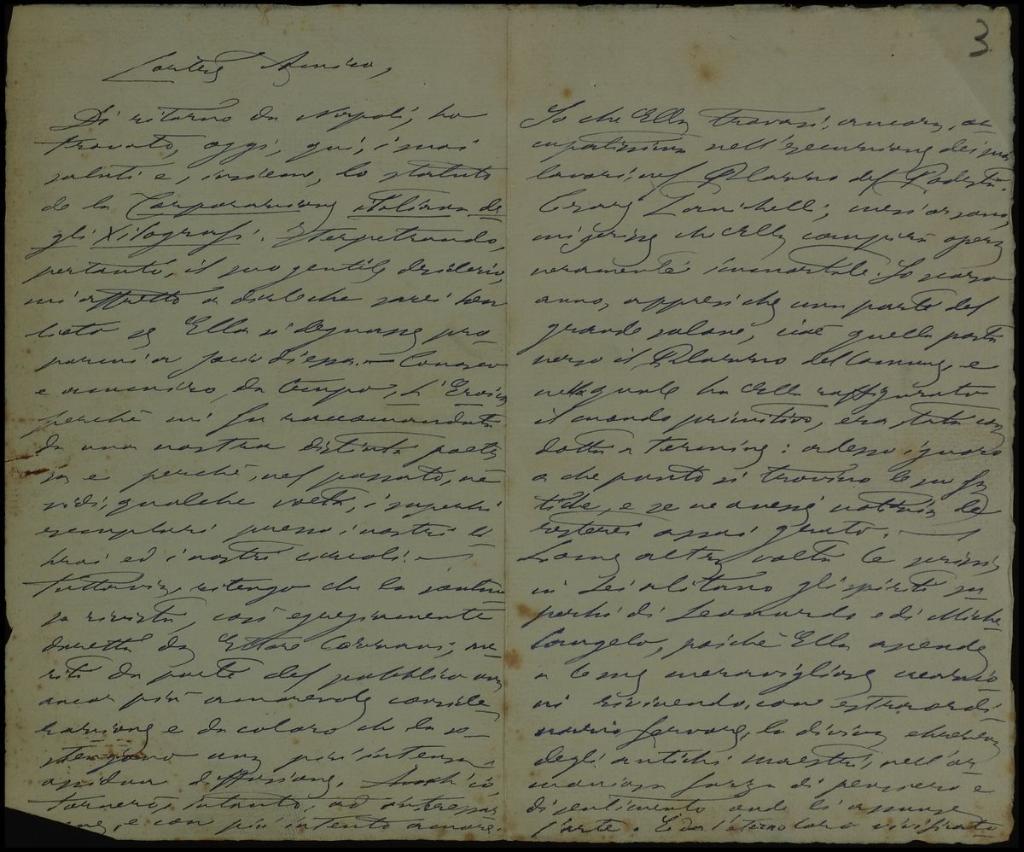 3
Amico,
Di ritorno da Napoli, ho
trovato, oggi, qui, i suoi
saluti e, insieme, lo statuto
de la Corporazione italiana de
gli Xilografi. Interpetrando,
pertanto, il suo gentile desiderio,
mi affretto a dirle che sarei ben
lieto se Ella si degnasse pro
Conosco
e ammiro, da tempo, L'Eroica
perchè mi fu raccomandata
da una nostra distinta poetes
sa e perchè, nel passato, ne
vidi, qualche volta, i superbi
esemplari presso i nostri li
brai ed i nostri circoli.
Tuttavia, ritengo che la sontuo
sa rivista, così egregiamente
diretta da Ettore Cozzani, me
riti da parte del pubblico una
ancor più amorevole conside
razione e da coloro che la so
stengono una più intensa
diffusione. Anch'io,
tornerò, intanto, ad
e con più intento amore.
So che Ella trovasi, ancora, oc
cupatissimo nell'esecuzione dei suoi
lavori nel Palazzo del Podestà.
Zanichelli,
che Ella compirà opera
veramente immortale. Lo scorso
anno, appresi che una parte del
grande salone, cioè quella parte
verso il Palazzo del Comune e
nella quale ha Ella raffigurato
il mondo primitivo, era stata con
dotta a termine: adesso ignoro
a che punto si trovino le sue fa
tiche, e se ne avessi notizia le
resterei assai grato.
altra volta le scrissi,
in Lei abitano gli spiriti su
perbi di Leonardo e di Miche
langelo, poichè Ella ascende
a le sue meravigliose creazio
ni rivivendo, con estraordi
nario fervore, la divina ebrezza
degli antichi maestri, nell'ar
moniosa forza di pensiero e
di sentimento onde
l'arte.